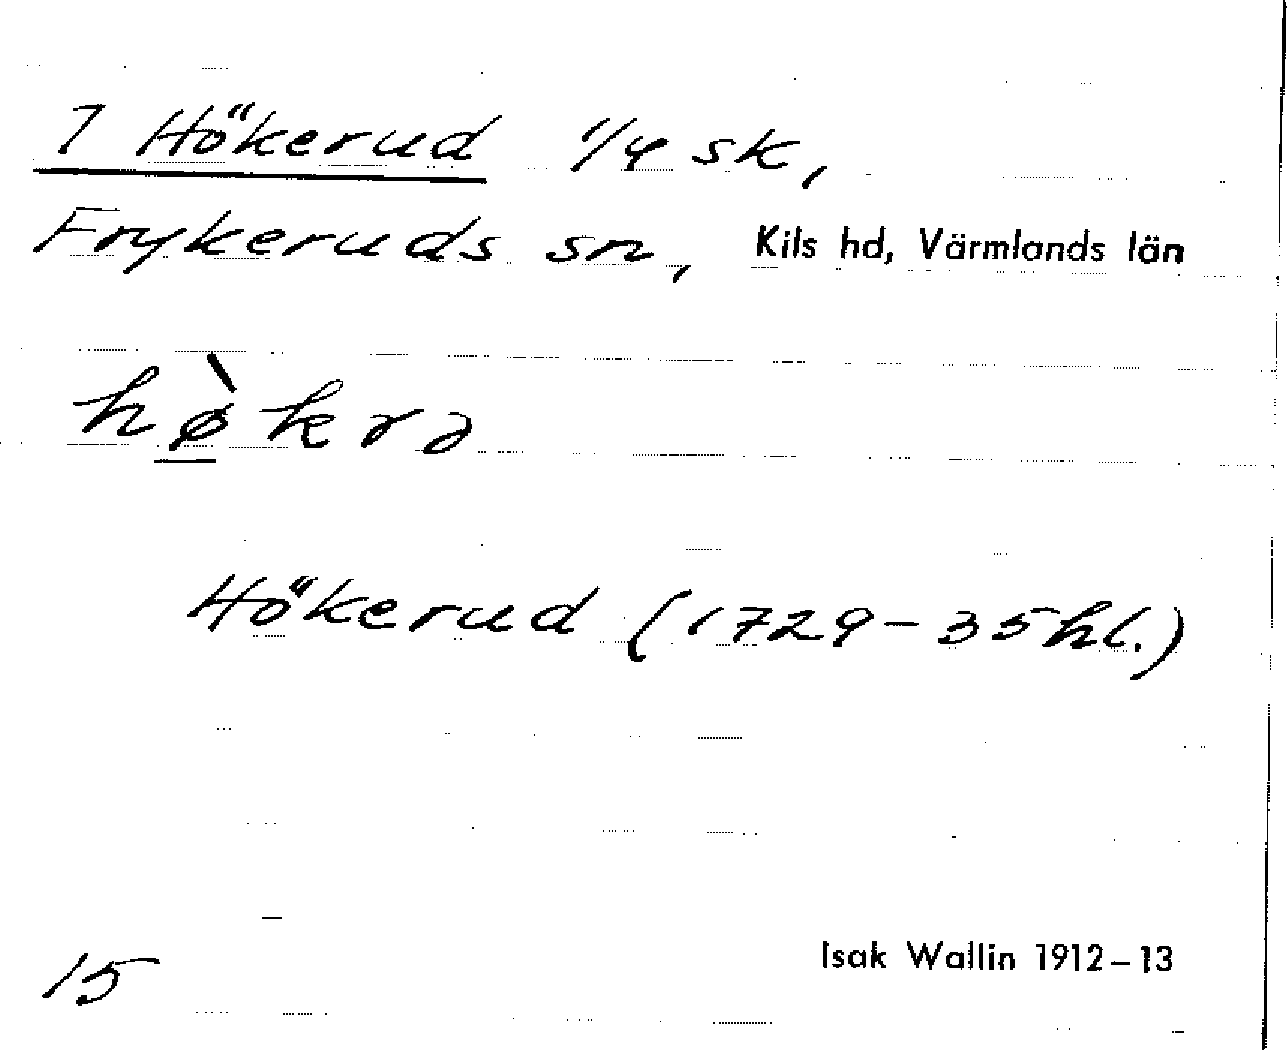 7 Hökerud 1/4 sk,
Frykeruds sn, Kils hd, Värmlands län
hø̀krə
Hökerud (1729–35hl.)
Isak Wallin 1912–13
15